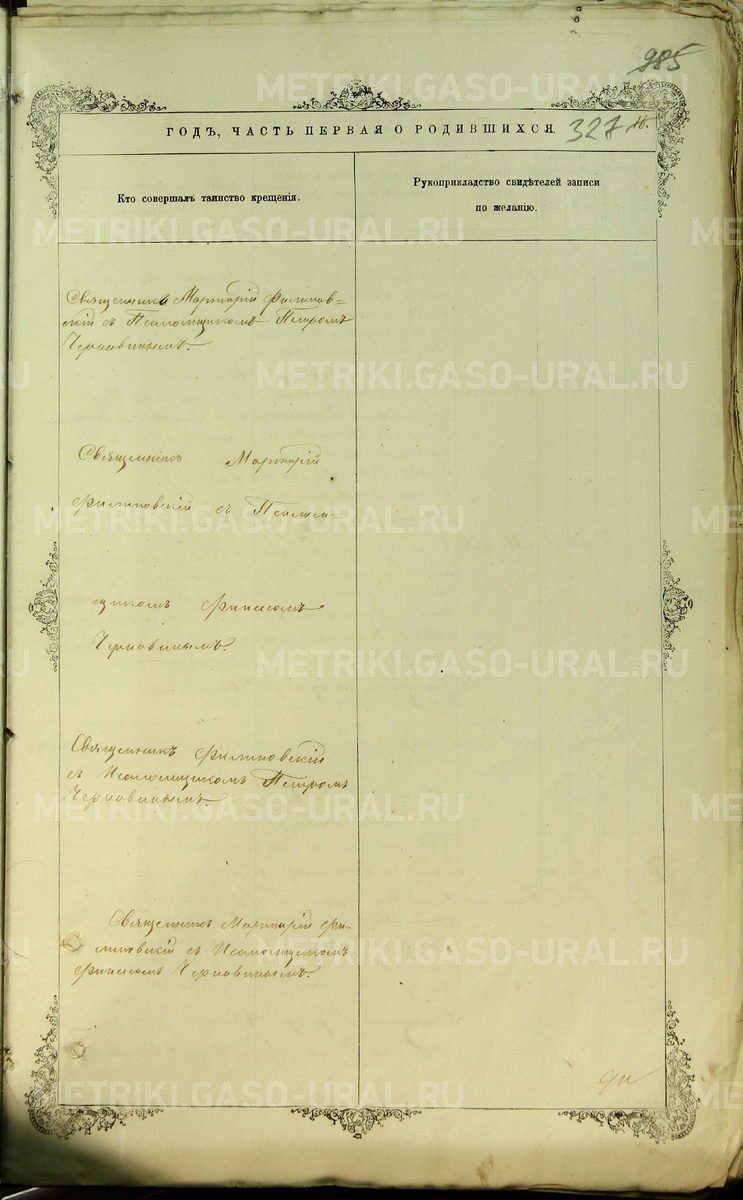 985
ГОДЪ, ЧАСТЬ ПЕРВАЯ О РОДИВШИХСЯ.
327
Кто совершалъ таинство крещенія.
Рукоприкладство свидѣтелей записи
по желанію.
Священникъ Мартирій Филипов-
скій съ Псаломщикомъ Петромъ
Черновинымъ.
Священникъ Мартирій
Филиповскій съ Псалом-
щикомъ
Черновинымъ.
Священникъ Филиповскій
съ Псаломщикомъ Петромъ
Черновинымъ.
Священникъ Мартирій Фи-
липовскій съ Псаломщикомъ
Черновинымъ.
METRIKI.GASO-URAL.RU